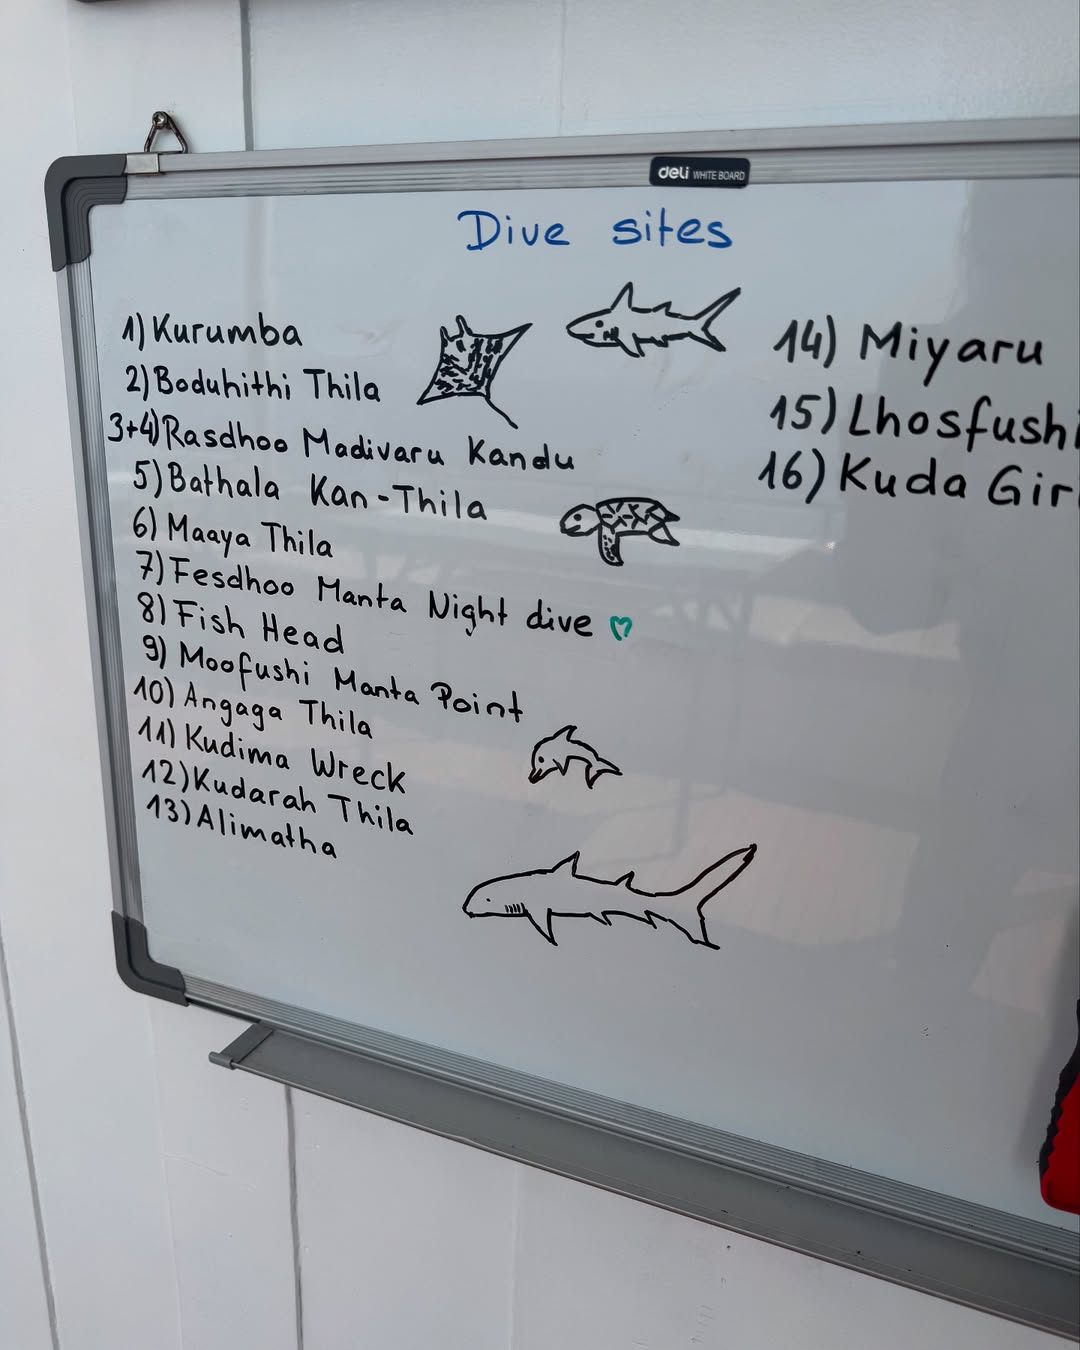 deli WHITE BOARD
Dive sites
1) Kurumba
2) Boduhithi Thila
3+4) Rasdhoo Madivaru Kandu
5) Bathala Kan-Thila
6) Maaya Thila
7) Fesdhoo Manta Night dive
8) Fish Head
9) Moofushi Manta Point
10) Angaga Thila
11) Kudima Wreck
12) Kudarah Thila
13) Alimatha
14) Miyaru
15) Lhosfushi
16) Kuda Gir